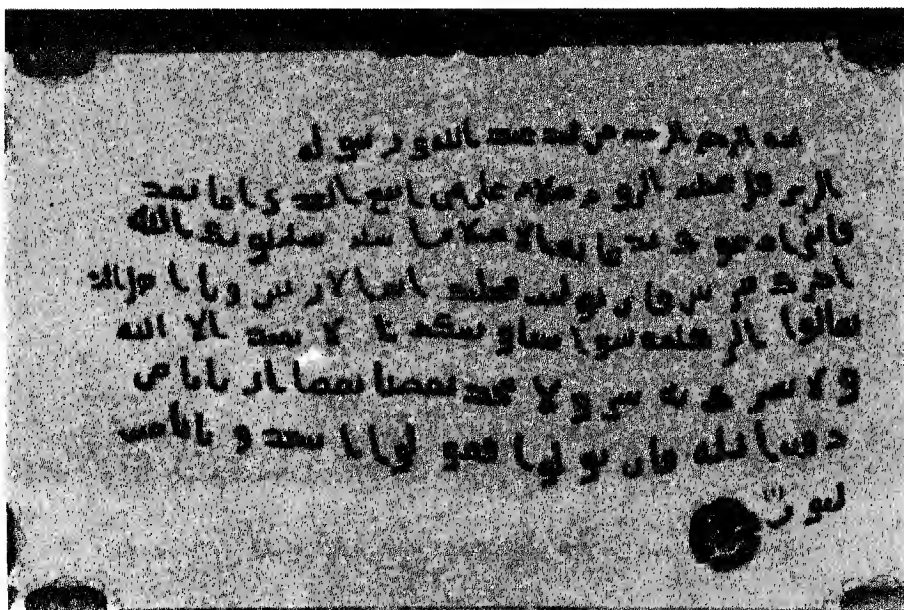 الله الرحمن الرحيم من محمد عبد الله و رسوله
الى هرقل عظيم الروم سلام على من اتبع الهدى اما بعد
فانى ادعوك بدعاية الاسلام اسلم تسلم يوتك الله
اجرك مرتين فان توليت فعليك اثم الاريسين ويا اهل
تعالوا الى كلمة سوا بيننا وبينكم ان لا نعبد الا الله
ولا نشرك به شيا ولا يتخذ بعضنا بعضا اربابا من
دون الله فان تولوا فقولوا اشهدوا بانا مس
لمون